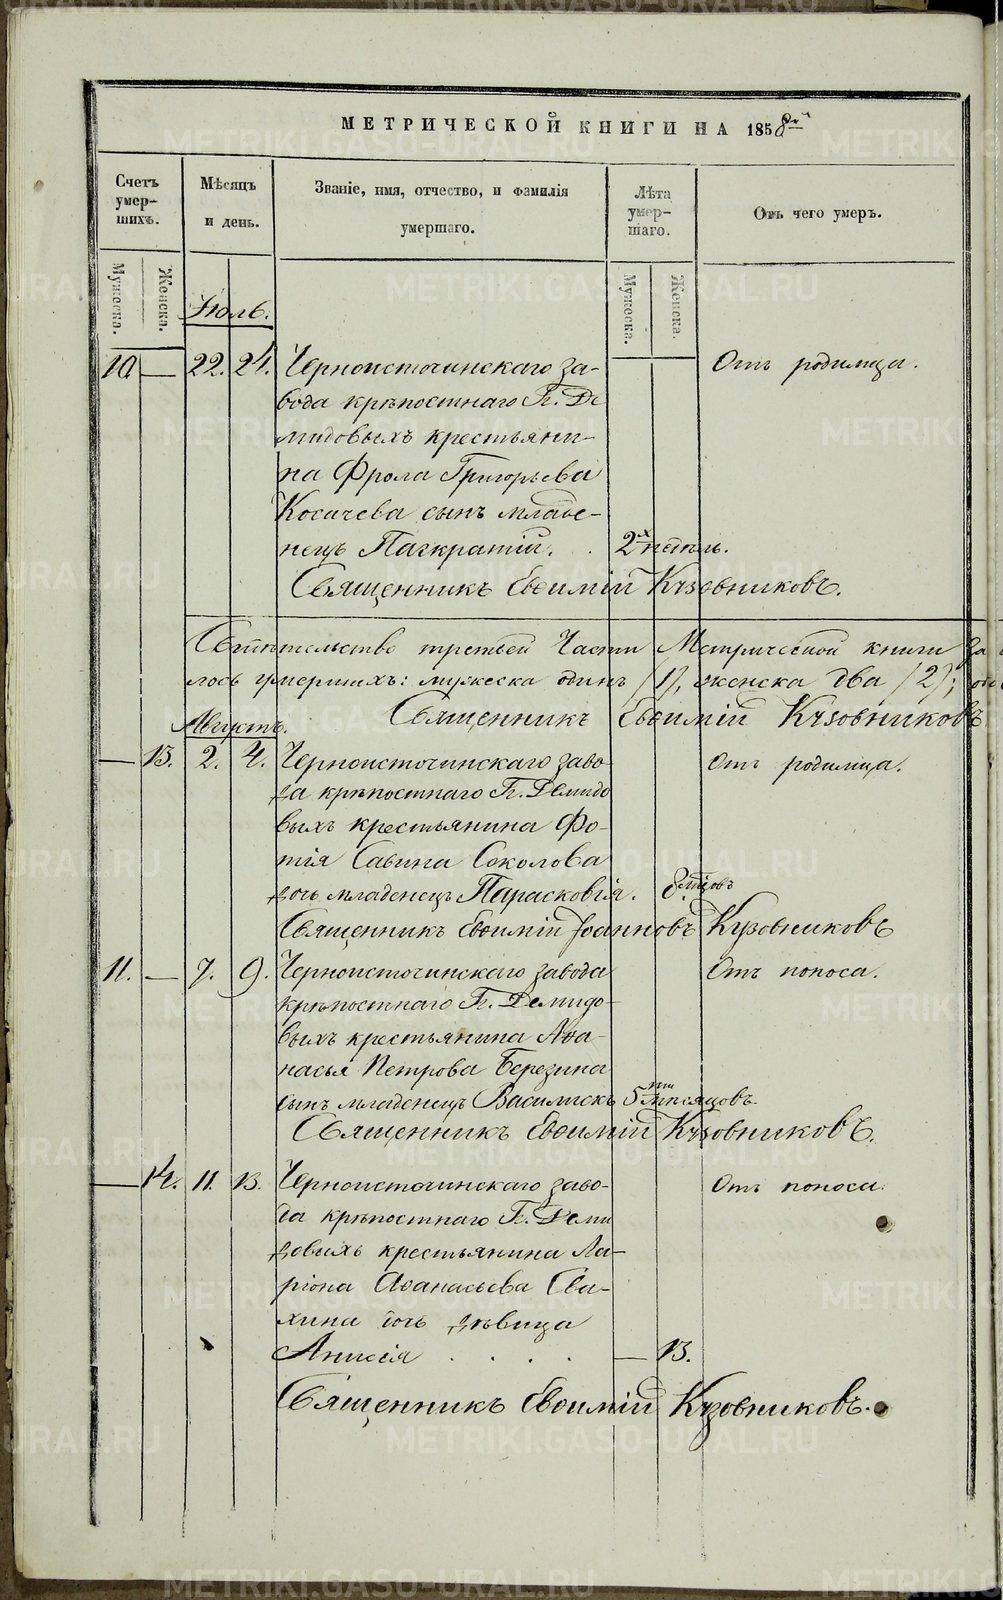 МЕТРИЧЕСКОЙ КНИГИ НА 1858й
Счетъ умер- шихъ.
Мѣсяцъ и день.
Званіе, имя, отчество, и фамилія умершаго.
Лѣта умер- шаго.
Отъ чего умеръ.
Мужеска. Женска. Мужеска. Женска.
Июль.
10 — 22. 24. Черноисточинскаго за- Отъ родимца.
вода крѣпостнаго Гг. Де
мидовыхъ крестьяни-
на Фрола Григорьева
Косачева сынъ младе-
нецъ Панкратій. . 2х недѣль.
Священникъ Евѳимій Кузовниковъ.
Свѣтельство третьей Части Метрической книги за
лось умершихъ: мужеска одинъ (1), женска два (2);
Священникъ Евѳимій Кузовниковъ
Августъ.
— 13. 2. 4. Черноисточинскаго заво- Отъ родимца.
да крѣпостнаго Гг. Демидо
выхъ крестьянина Фо-
тія Савина Соколова
дочь младенецъ Парасковія. 8 мцовъ
Священникъ Евѳимій Іоанновъ Кузовниковъ
11. — 7. 9. Черноисточинскаго завода Отъ поноса.
крѣпостнаго Гг. Демидо-
выхъ крестьянина Аѳа-
насья Петрова Березина
сынъ младенецъ Василискъ 5ти мѣсяцовъ
Священникъ Евѳимій Кузовниковъ.
— 14. 11. 13. Черноисточинскаго заво- Отъ поноса.
да крѣпостнаго Гг. Деми
довыхъ крестьянина Ла-
ріона Аѳанасьева Сва-
хина дочь дѣвица
Анисія . . . . — 13.
Священникъ Евѳимій Кузовниковъ.